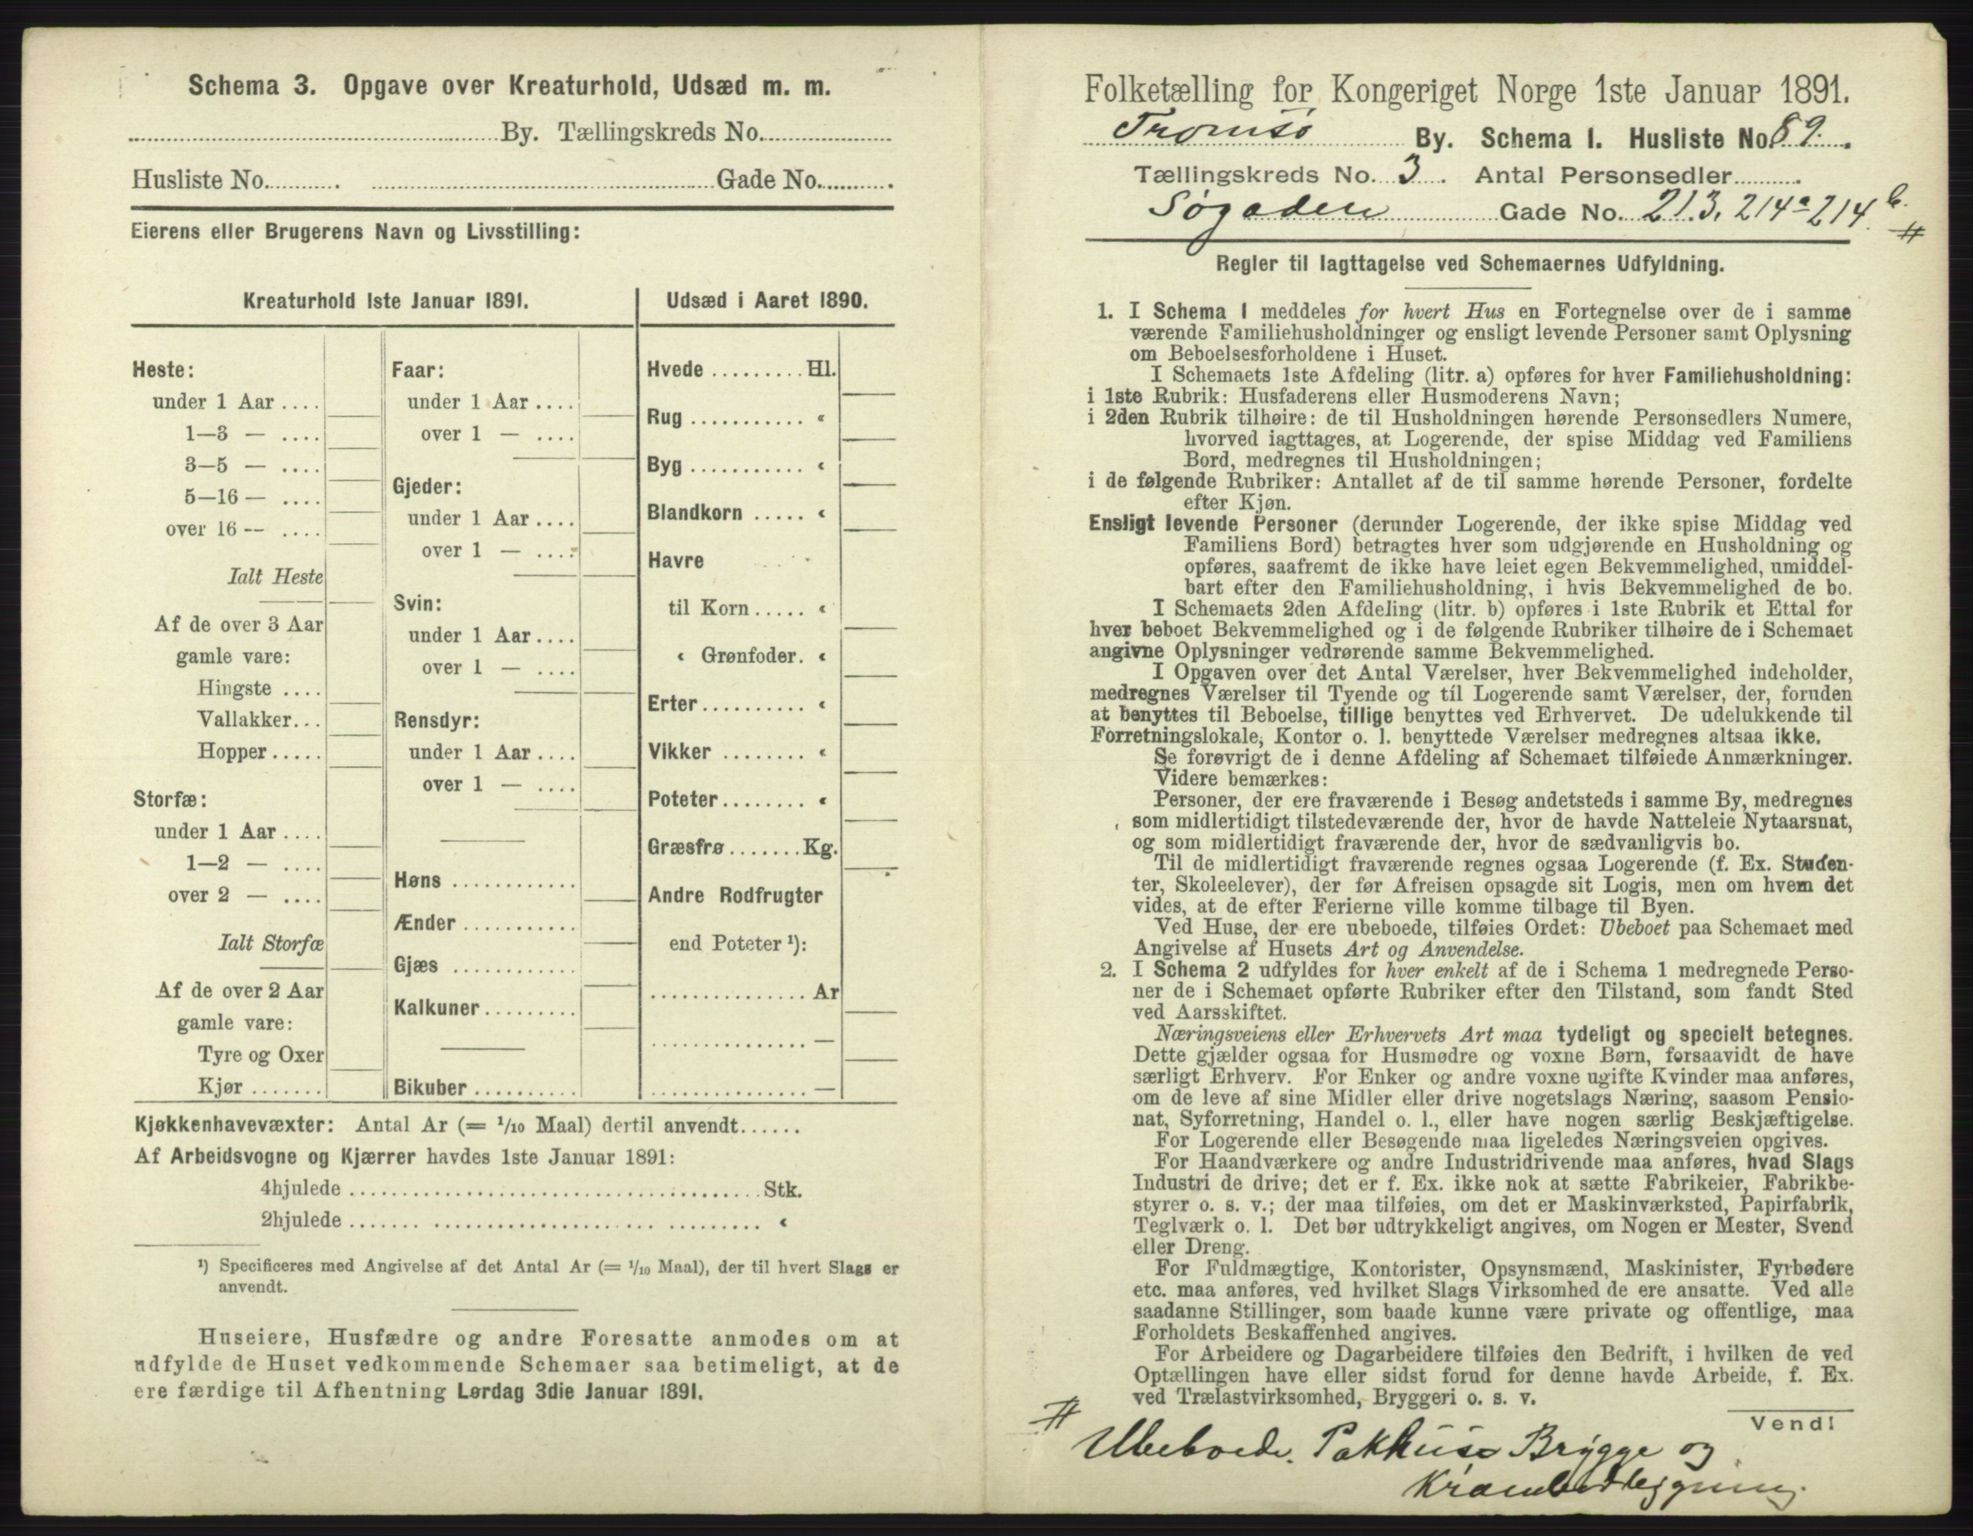 Schema 3. Opgave over Kreaturhold, Udsæd m. m.
By. Tællingskreds No.
Husliste No. Gade No.
Eierens eller Brugerens Navn og Livsstilling:
Kreaturhold 1ste Januar 1891.
Heste:
under 1 Aar ....
1—3 — ....
3—5 — ....
5—16 — ....
over 16 — ....
Ialt Heste
Af de over 3 Aar
gamle vare:
Hingste ....
Vallakker...
Hopper .....
Storfæ:
under 1 Aar ....
1—2 — ....
over 2 — ....
Ialt Storfæ
Af de over 2 Aar
gamle vare:
Tyre og Oxer
Kjør ........
Faar:
under 1 Aar ....
over 1 — ....
Gjeder:
under 1 Aar ....
over 1 — ....
Svin:
under 1 Aar ....
over 1 — ....
Rensdyr:
under 1 Aar ....
over 1 — ....
Høns ............
Ænder ...........
Gjæs ............
Kalkuner .........
Bikuber ..........
Udsæd i Aaret 1890.
Hvede ......... Hl.
Rug ........... «
Byg ........... «
Blandkorn ..... «
Havre
til Korn ..... «
« Grønfoder. «
Erter.......... «
Vikker ........ «
Poteter ........ «
Græsfrø ....... Kg.
Andre Rodfrugter
end Poteter ¹):
............... Ar
............... —
............... —
Kjøkkenhavevæxter: Antal Ar (= 1/10 Maal) dertil anvendt......
Af Arbeidsvogne og Kjærrer havdes 1ste Januar 1891:
4hjulede ........................................ Stk.
2hjulede ....... ..................... ......... «
¹) Specificeres med Angivelse af det Antal Ar (= 1/10 Maal), der til hvert Slags er
anvendt.
Huseiere, Husfædre og andre Foresatte anmodes om at
udfylde de Huset vedkommende Schemaer saa betimeligt, at de
ere færdige til Afhentning Lørdag 3die Januar 1891.
Folketælling for Kongeriget Norge 1ste Januar 1891.
Tromsø By. Schema 1. Husliste No. 89.
Tællingskreds No. 3. Antal Personsedler
Søgaden Gade No. 213, 214a-214b. #
Regler til Iagttagelse ved Schemaernes Udfyldning.
1. I Schema 1 meddeles for hvert Hus en Fortegnelse over de i samme
værende Familiehusholdninger og ensligt levende Personer samt Oplysning
om Beboelsesforholdene i Huset.
I Schemaets 1ste Afdeling (litr. a) opføres for hver Familiehusholdning:
i 1ste Rubrik: Husfaderens eller Husmoderens Navn;
i 2den Rubrik tilhøire: de til Husholdningen hørende Personsedlers Numere,
hvorved iagttages, at Logerende, der spise Middag ved Familiens
Bord, medregnes til Husholdningen;
i de følgende Rubriker: Antallet af de til samme hørende Personer, fordelte
efter Kjøn.
Ensligt levende Personer (derunder Logerende, der ikke spise Middag ved
Familiens Bord) betragtes hver som udgjørende en Husholdning og
opføres, saafremt de ikke have leiet egen Bekvemmelighed, umiddel-
bart efter den Familiehusholdning, i hvis Bekvemmelighed de bo.
I Schemaets 2den Afdeling (litr. b) opføres i 1ste Rubrik et Ettal for
hver beboet Bekvemmelighed og i de følgende Rubriker tilhøire de i Schemaet
angivne Oplysninger vedrørende samme Bekvemmelighed.
I Opgaven over det Antal Værelser, hver Bekvemmelighed indeholder,
medregnes Værelser til Tyende og til Logerende samt Værelser, der, foruden
at benyttes til Beboelse, tillige benyttes ved Erhvervet. De udelukkende til
Forretningslokale, Kontor o. l. benyttede Værelser medregnes altsaa ikke.
Se forøvrigt de i denne Afdeling af Schemaet tilføiede Anmærkninger.
Videre bemærkes:
Personer, der ere fraværende i Besøg andetsteds i samme By, medregnes
som midlertidigt tilstedeværende der, hvor de havde Natteleie Nytaarsnat,
og som midlertidigt fraværende der, hvor de sædvanligvis bo.
Til de midlertidigt fraværende regnes ogsaa Logerende (f. Ex. Studen-
ter, Skoleelever), der før Afreisen opsagde sit Logis, men om hvem det
vides, at de efter Ferierne ville komme tilbage til Byen.
Ved Huse, der ere ubeboede, tilføies Ordet: Ubeboet paa Schemaet med
Angivelse af Husets Art og Anvendelse.
2. I Schema 2 udfyldes for hver enkelt af de i Schema 1 medregnede Perso-
ner de i Schemaet opførte Rubriker efter den Tilstand, som fandt Sted
ved Aarsskiftet.
Næringsveiens eller Erhvervets Art maa tydeligt og specielt betegnes.
Dette gjælder ogsaa for Husmødre og voxne Børn, forsaavidt de have
særligt Erhverv. For Enker og andre voxne ugifte Kvinder maa anføres,
om de leve af sine Midler eller drive nogetslags Næring, saasom Pensio-
nat, Syforretning, Handel o. l., eller have nogen særlig Beskjæftigelse.
For Logerende eller Besøgende maa ligeledes Næringsveien opgives.
For Haandværkere og andre Industridrivende maa anføres, hvad Slags
Industri de drive; det er f. Ex. ikke nok at sætte Fabrikeier, Fabrikbe-
styrer o. s. v.; der maa tilføies, om det er Maskinværksted, Papirfabrik,
Teglværk o. l. Det bør udtrykkeligt angives, om Nogen er Mester, Svend
eller Dreng.
For Fuldmægtige, Kontorister, Opsynsmænd, Maskinister, Fyrbødere
etc. maa anføres, ved hvilket Slags Virksomhed de ere ansatte. Ved alle
saadanne Stillinger, som baade kunne være private og offentlige, maa
Forholdets Beskaffenhed angives.
For Arbeidere og Dagarbeidere tilføies den Bedrift, i hvilken de ved
Optællingen have eller sidst forud for denne havde Arbeide, f. Ex.
ved Trælastvirksomhed, Bryggeri o. s. v.
Vend!
# Ubeboede. Pakhuse Brygge og